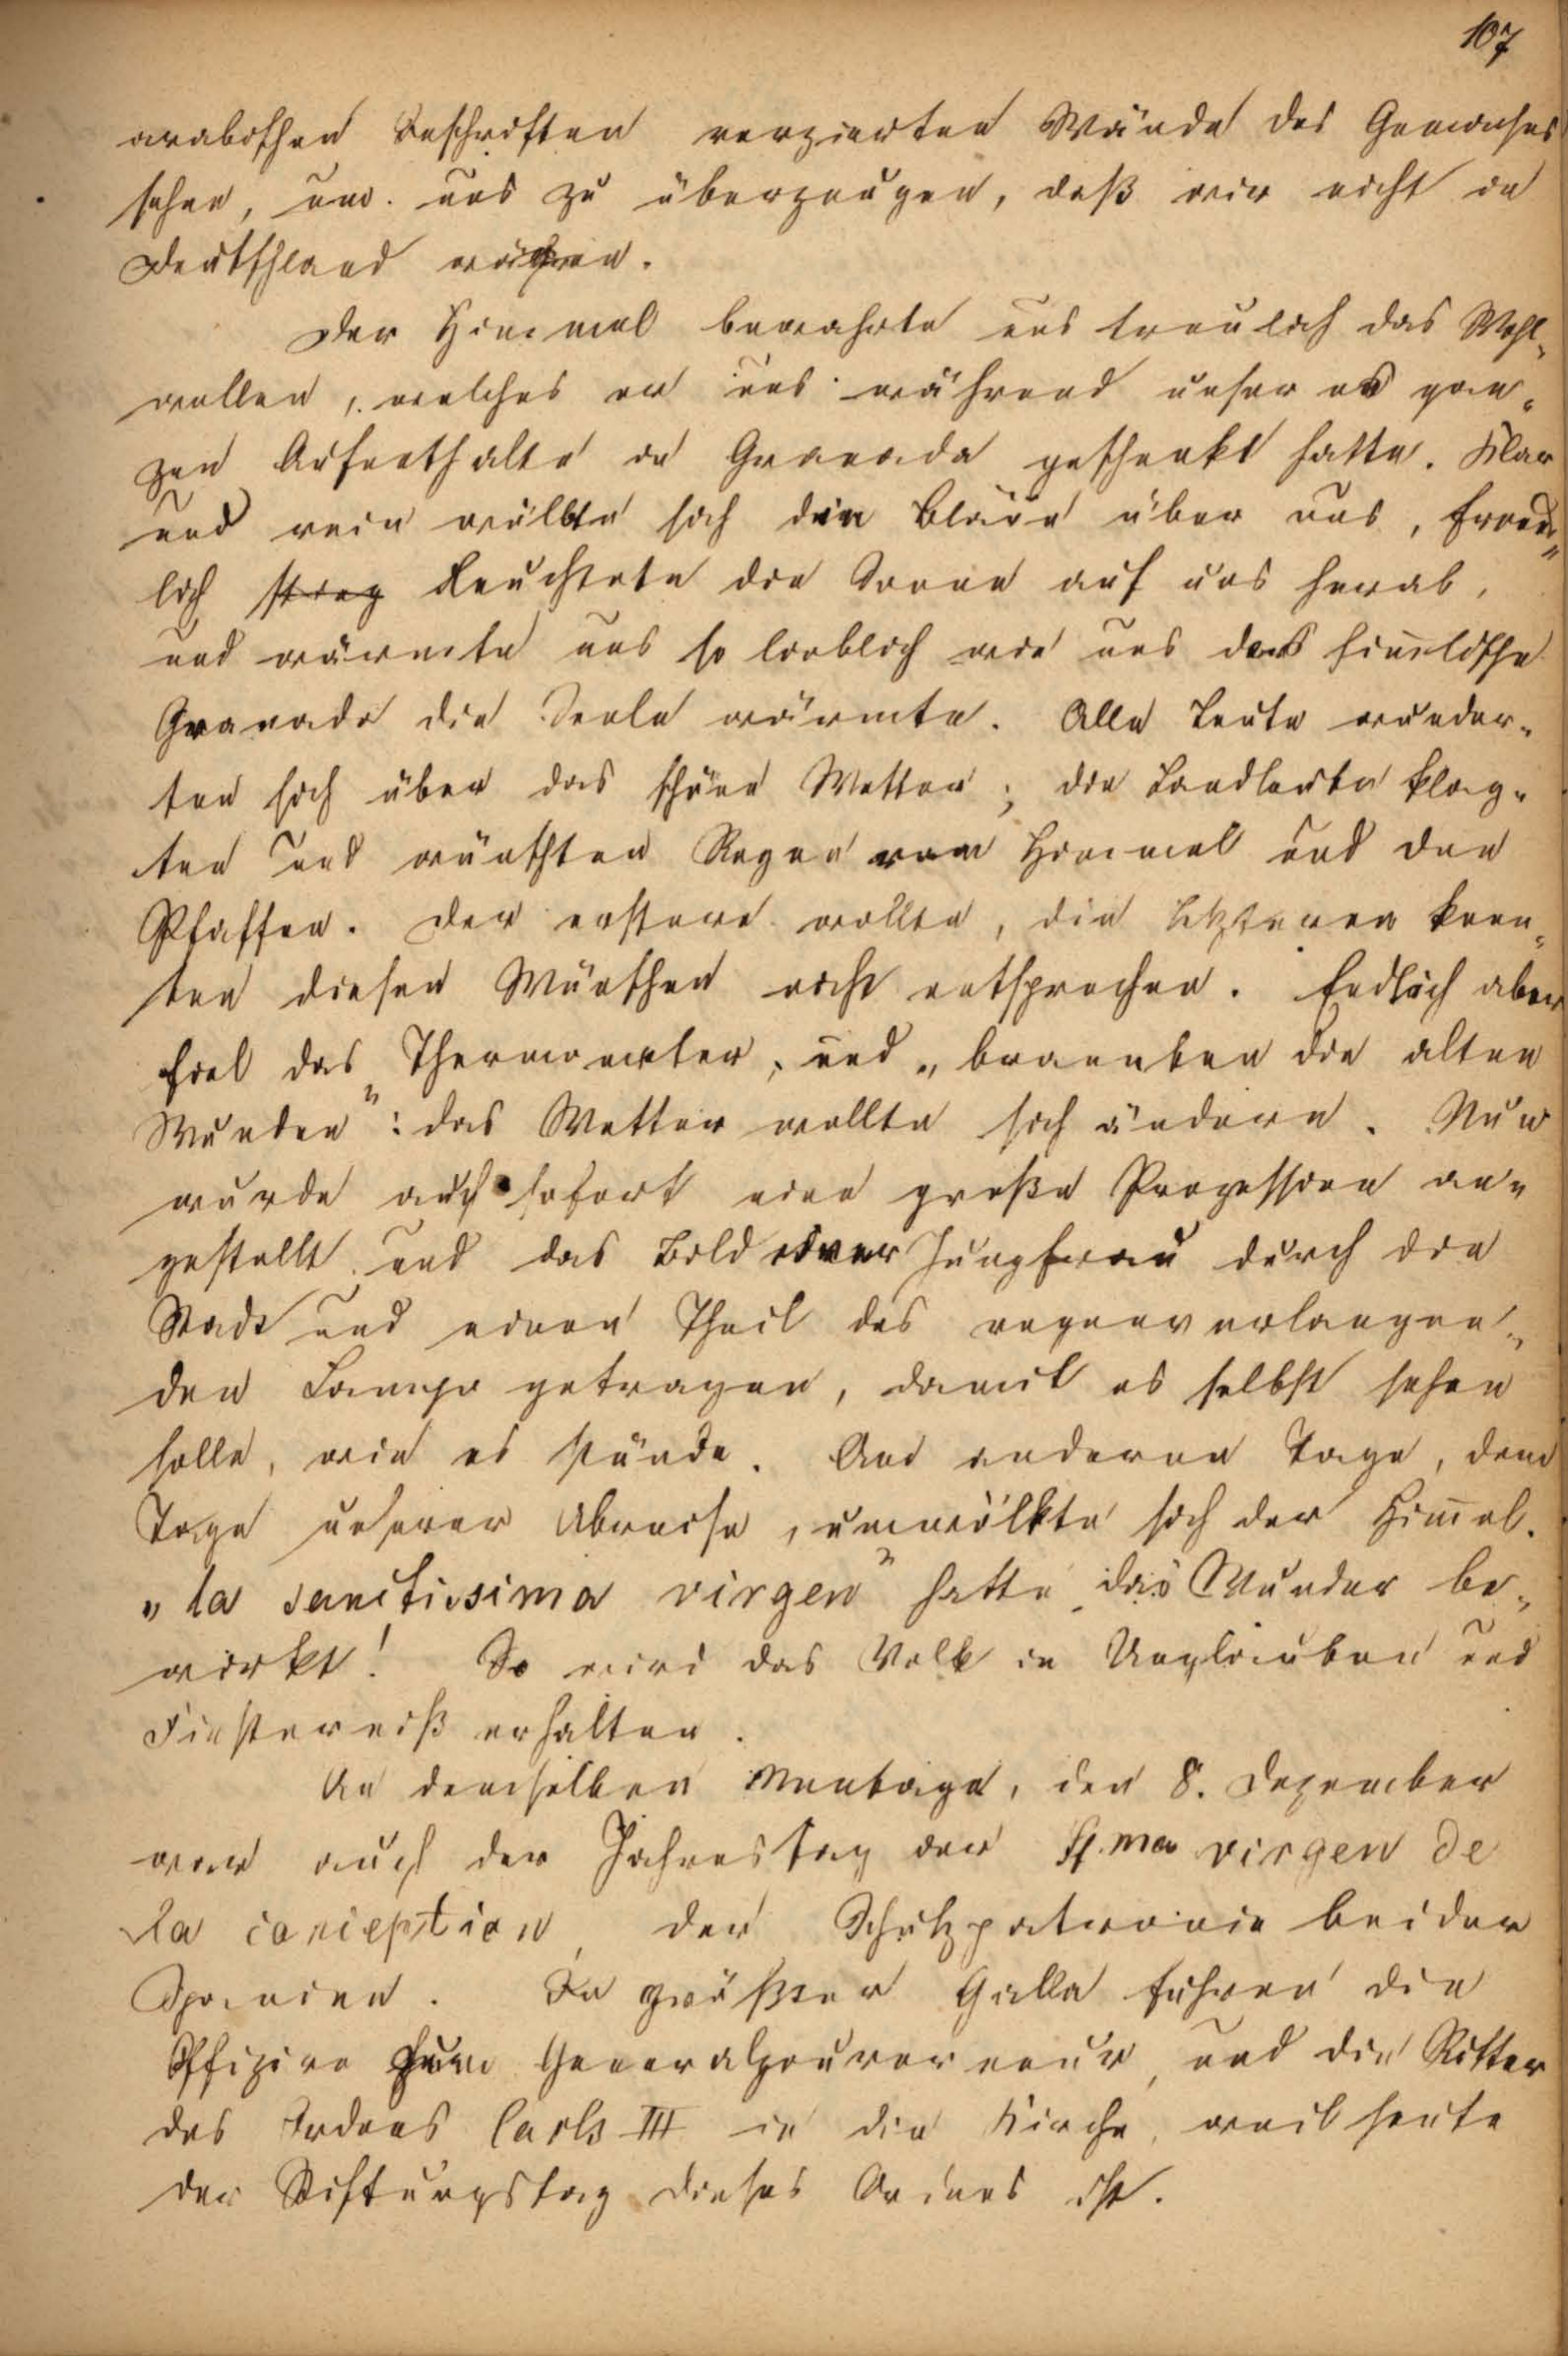 107
arabischen Inschriften verzierten Wände des Gemaches
sehen, um uns zu überzeugen, daß wir nicht in
Deutschland wären.
Der Himmel bewahrte uns treulich das Wohl-
wollen, welches er uns während unseres gan-
zen Aufenthalte in Granada geschenkt hatte. Klar
und rein wölbte sich die Bläue über uns, freund-
lich stieg leuchtete die Sonne auf uns herab,
und wärmte uns so lieblich wie uns das himlische
Granada die Seele wärmte. Alle Leute wunder-
ten sich über das schöne Wetter; die Landleute klag-
ten und wünschten Regen vom Himmel und den
Pfaffen. Der erstere wollte, die letzteren konn-
ten diesen Wünschen nicht entsprechen. Endlich aber
fiel das Thermometer, und „brannten die alten
Wunden“: das Wetter wollte sich ändern. Nun
wurde auch sofort eine große Prozession an-
gestellt und das Bild einer Jungfrau durch die
Stadt und einen Theil des regenverlangen-
den Campo getragen, damit es selbst sehen
solle, wie es stünde. Am anderen Tage, dem
Tage unserer Abreise, umwölkte sich der Himel.
„la sanctissima virgen“ hatte das Wunder be-
wirkt! So wird das Volk in Unglauben und
Finsterniß erhalten.
An demselben Montage, den 8. Dezember
war auch der Jahrestag der Sma virgen de
la conception, der Schutzpatronin beider
Spanien. In größter Galla fuhren die
Offizire zum Generalgouverneur, und die Ritter
des Ordens Carls III in die Kirche, weil heute
der Stiftungstag dieses Ordens ist.